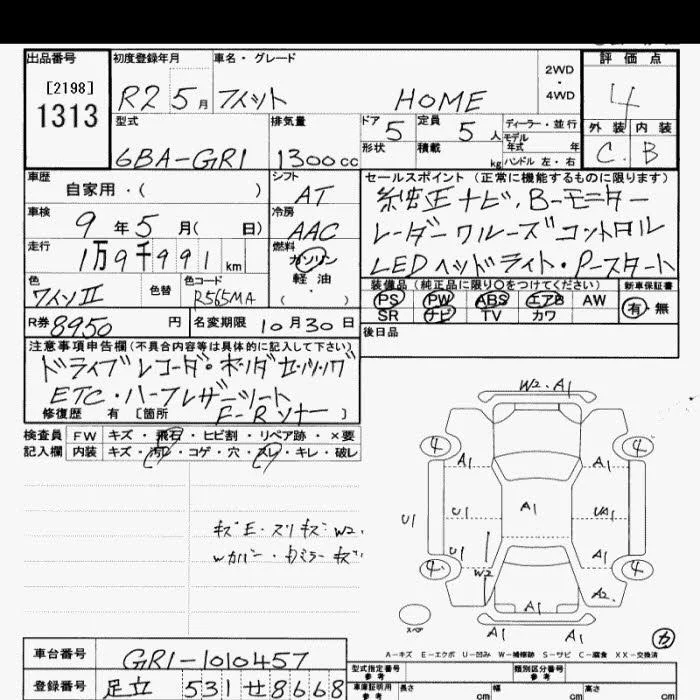 出品番号 初度登録年月 車名・グレード 評価点
[2198] 1313 R2 5月 フィット HOME 2WD・4WD 4
型式 排気量 ドア 定員 ディーラー・並行 外装 内装
6BA-GR1 1300cc 5 5人 モデル年式 年 C B
形状 積載 kg ハンドル 左・右
車歴 シフト セールスポイント(正常に機能するものに限ります)
自家用・( ) AT 純正ナビ、B-モニター
車検 冷房
9年5月( 日) AAC レーダークルーズコントロル
走行 燃料
1万9千991km ガソリン LEDヘッドライト・Pースタート
色 色替 色コード 軽油・ 装備品(純正品に限り○をつけてください) 新車保証書
ワインII R565MA PS PW ABS エアB AW 有・無
R券 8950円 名変期限 10月30日 SR ナビ TV カワ
注意事項申告欄(不具合内容等は具体的に記入して下さい) 後日品
ドライブレコーダ・ホンダセンシング
ETC・ハーフレザーシート
修復歴 有[箇所 F-Rソナー]
W2、A1
検査員 FW キズ・飛石・ヒビ割・リペア跡・×要
記入欄 内装 キズ・汚れ・コゲ・穴・スレ・キレ・破レ
4 4
A1 A1
U1 U1 A1 UA1
キズE・スリキズ・W2、
U1 A1
Wカバー・ミラーキズ
4 W2 4
A2
A1 A1
スペア A1
カ
A-キズ E-エクボ U-凹み W-補修跡 S-サビ C-腐食 XX-交換済
車台番号 GR1-1010457 型式指定番号 参考 類別区分番号 参考
登録番号 足立 531 せ 8668 車庫証明用 参考 長さ cm 幅 cm 高さ cm